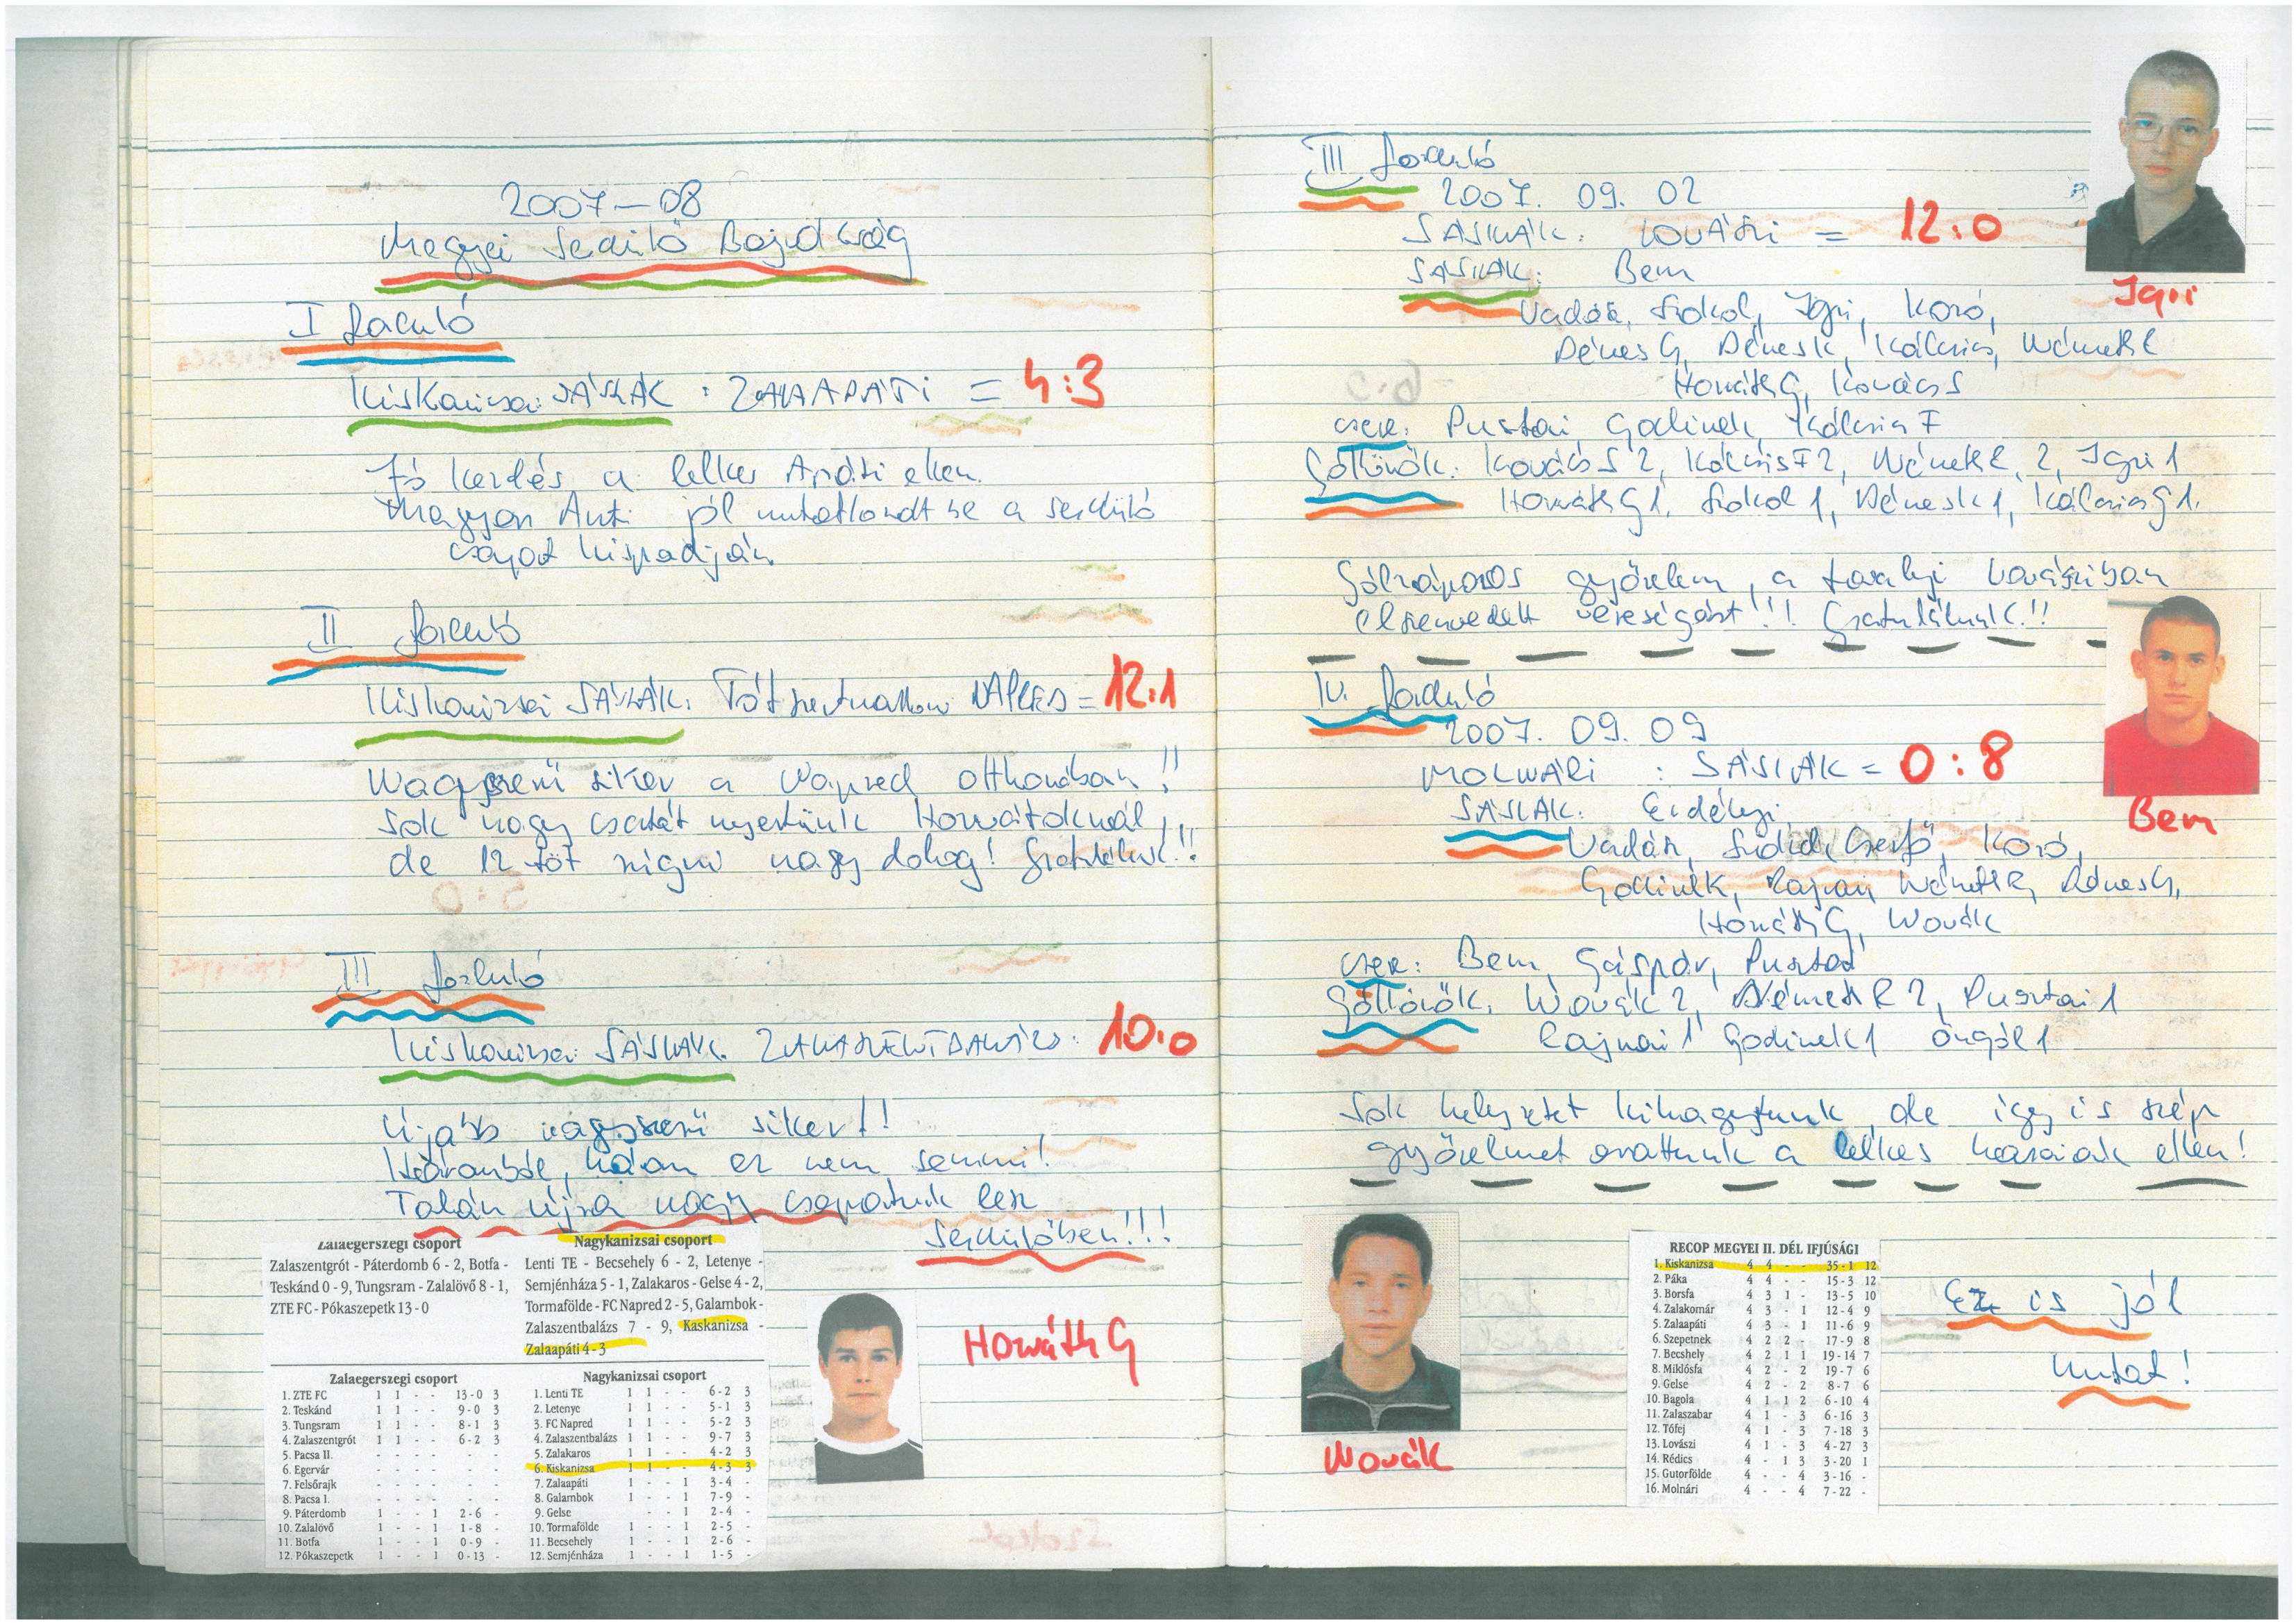 2007-08
Megyei Serdülő Bajnokság
I forduló
Kiskanizsai SÁSKÁK : ZALAAPÁTI = 4:3
Jó kezdés a lelkes Apáti ellen.
Magyar Anti jól mutatkozott be a serdülő
csapat kispadján
II forduló
Kiskanizsai SÁSKÁK : Tótszentmárton NAPRED = 12:1
Nagyszerű siker a Napred otthonában!!
Sok nagy csatát nyertünk Horvátoknál,
de 12-töt rúgni nagy dolog! Gratulálunk!!
III forduló
Kiskanizsai SÁSKÁK : ZALASZENTBALÁZS : 10:0
Újabb nagyszerű siker!!
három ez nem semmi!
Talán újra nagy csapatunk lesz
serdülőben!!!
Zalaegerszegi csoport
Zalaszentgrót - Páterdomb 6 - 2, Botfa -
Teskánd 0 - 9, Tungsram - Zalalövő 8 - 1,
ZTE FC - Pókaszepetk 13 - 0
Nagykanizsai csoport
Lenti TE - Becsehely 6 - 2, Letenye -
Semjénháza 5 - 1, Zalakaros - Gelse 4 - 2,
Tormafölde - FC Napred 2 - 5, Galambok -
Zalaszentbalázs 7 - 9, Kaskanizsa -
Zalaapáti 4 - 3
Zalaegerszegi csoport
1. ZTE FC 1 1 - - 13-0 3
2. Teskánd 1 1 - - 9-0 3
3. Tungsram 1 1 - - 8-1 3
4. Zalaszentgrót 1 1 - - 6-2 3
5. Pacsa II. - - - - - -
6. Egervár - - - - - -
7. Felsőrajk - - - - - -
8. Pacsa I. - - - - - -
9. Páterdomb 1 - - 1 2-6 -
10. Zalalövő 1 - - 1 1-8 -
11. Botfa 1 - - 1 0-9 -
12. Pókaszepetk 1 - - 1 0-13 -
Nagykanizsai csoport
1. Lenti TE 1 1 - - 6-2 3
2. Letenye 1 1 - - 5-1 3
3. FC Napred 1 1 - - 5-2 3
4. Zalaszentbalázs 1 1 - - 9-7 3
5. Zalakaros 1 1 - - 4-2 3
6. Kiskanizsa 1 1 - - 4-3 3
7. Zalaapáti 1 - - 1 3-4 -
8. Galambok 1 - - 1 7-9 -
9. Gelse - - 1 2-4 -
10. Tormafölde 1 - - 1 2-5 -
11. Becsehely 1 - - 1 2-6 -
12. Semjénháza 1 - - 1 1-5 -
Horváth G
III forduló
2007. 09. 02
SÁSKÁK : LOVÁSZI = 12:0
SÁSKÁK: Bem
Vadász, Szokol, Igri, Kozó,
Dénes G, Dénes K, Kálcsics, Németh R
Horváth G, Kovács S
csere: Pusztai, Godinek, Kálcsics F
Góllövők: Kovács S 2, Kálcsics F 2, Németh R 2, Igri 1
Horváth G 1, Szokol 1, Dénes K 1, Kálcsics G 1.
Gólzáporos győzelem, a tavalyi Lovásziban
elszenvedett vereségért!!! Gratulálunk!!
Igri
IV. forduló
2007. 09. 09
MOLNÁRI : SÁSKÁK = 0:8
SÁSKÁK: Erdélyi
Vadász, Cserfő, Kozó,
Godinek, Rajnai, Németh R, Dénes G,
Horváth G, Novák
csere: Bem, Gáspár, Pusztai
Góllövők: Novák 2, Németh R 2, Pusztai 1
Rajnai 1 Godinek 1 öngól 1
Sok helyzetet kihagytunk, de így is szép
győzelmet arattunk a lelkes hazaiak ellen!
Bem
Novák
RECOP MEGYEI II. DÉL IFJÚSÁGI
1. Kiskanizsa 4 4 - - 35-1 12
2. Páka 4 4 - - 15-3 12
3. Borsfa 4 3 1 - 13-5 10
4. Zalakomár 4 3 - 1 12-4 9
5. Zalaapáti 4 3 - 1 11-6 9
6. Szepetnek 4 2 2 - 17-9 8
7. Becshely 4 2 1 1 19-14 7
8. Miklósfa 4 2 - 2 19-7 6
9. Gelse 4 2 - 2 8-7 6
10. Bagola 4 1 1 2 6-10 4
11. Zalaszabar 4 1 - 3 6-16 3
12. Tófej 4 1 - 3 7-18 3
13. Lovászi 4 1 - 3 4-27 3
14. Rédics 4 - 1 3 3-20 1
15. Gutorfölde 4 - - 4 3-16 -
16. Molnári 4 - - 4 7-22 -
Ez is jól
mutat!